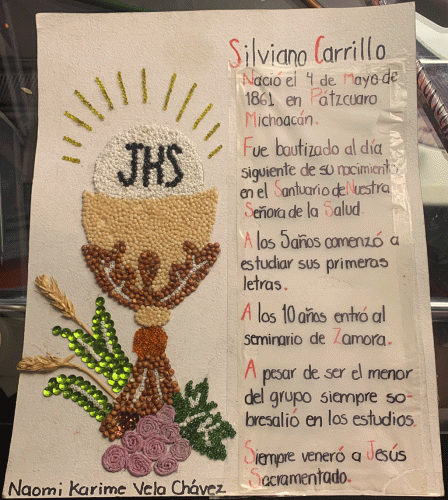 JHS
Silviano Carrillo
Nació el 4 de Mayo de
1861 en Pátzcuaro
Michoacán.
Fue bautizado al día
siguiente de su nacimiento
en el Santuario de Nuestra
Señora de la Salud.
A los 5 años comenzó a
estudiar sus primeras
letras.
A los 10 años entró al
seminario de Zamora.
A pesar de ser el menor
del grupo siempre so-
bresalió en los estudios.
Siempre veneró a Jesús
Sacramentado.
Naomi Karime Vela Chávez